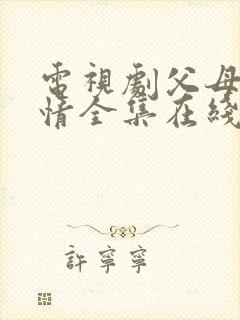 電視劇父母
情全集在綫
許寧寧